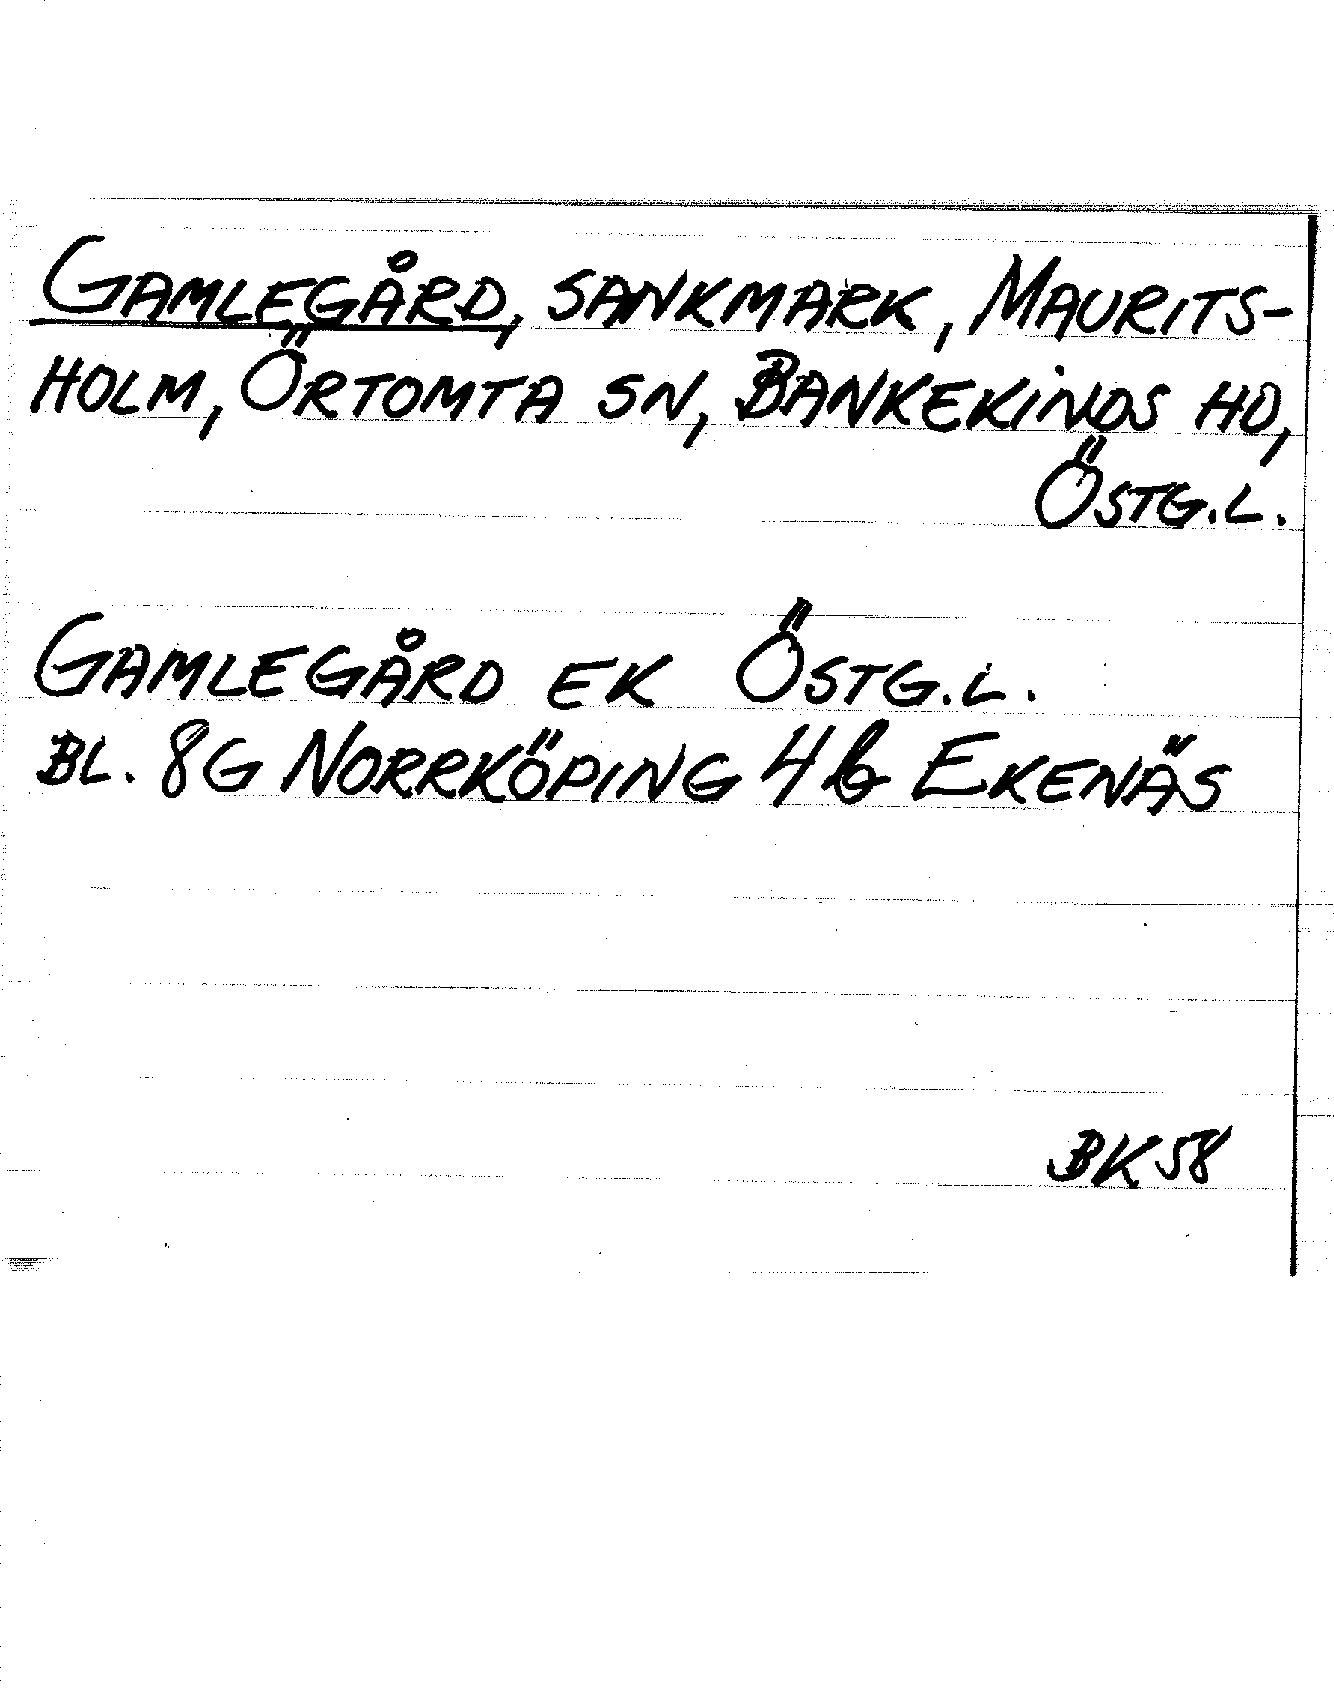 GAMLEGÅRD, SANKMARK, MAURITS-
HOLM, ÖRTOMTA SN, BANKEKINDS HD,
ÖSTG.L.
GAMLEGÅRD EK ÖSTG.L.
BL. 8G NORRKÖPING 4b EKENÄS
BK58